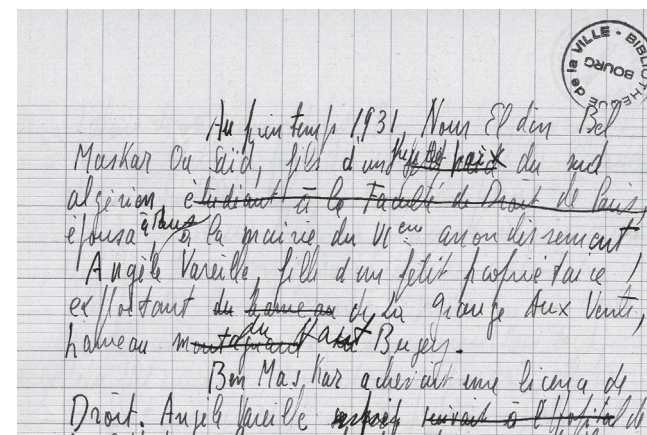 de la VILLE - BIBLIOTHEQUE
BOURG
Au printemps 1931, Nour El din Bel
Maskar Ou Saïd, fils d'un du sud
algérien, étudiant à la Faculté de Droit de Paris,
épousa à Paris à la mairie du VIème arrondissement
Angèle Vareille, fille d'un petit propriétaire
exploitant du hameau de la Grange aux Vents,
hameau montagnard du Haut Bugey.
Ben Maskar achevait une licence de
Droit. Angèle Vareille suivait à l'Hôpital de